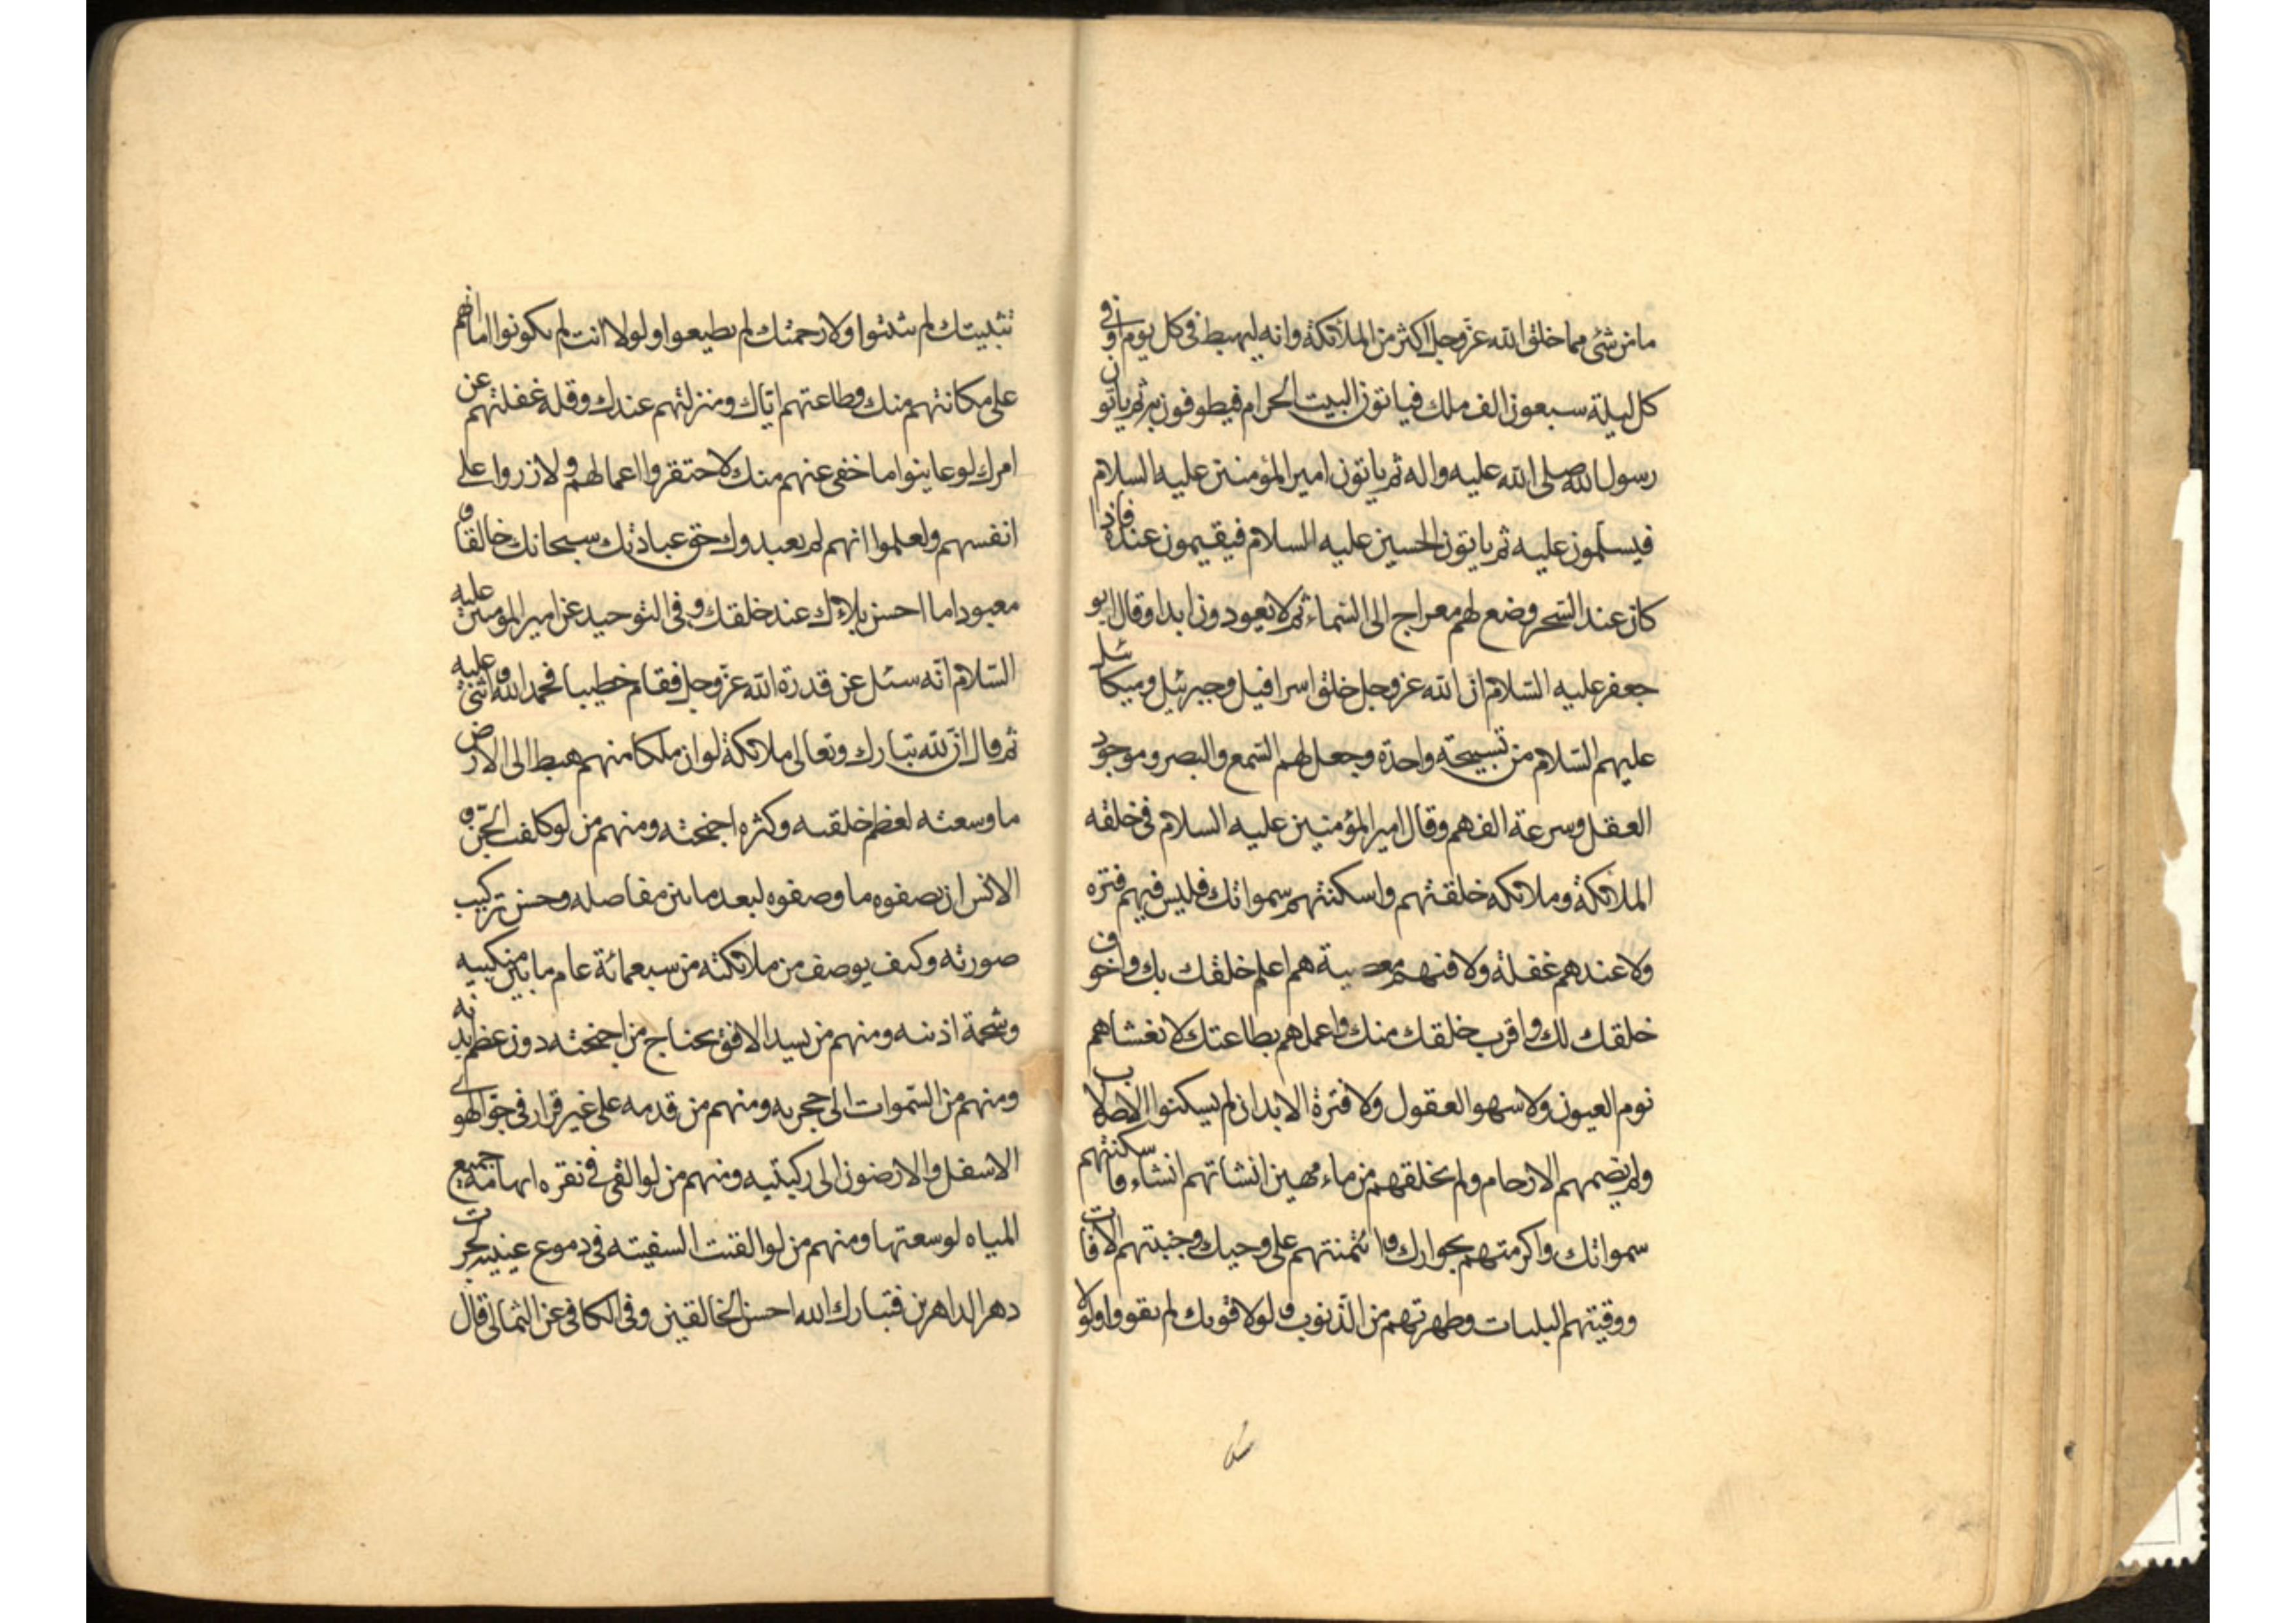 ما من شئ مما خلق الله عز وجل اكثر من الملائكة وانه ليهبط فى كل يوم او فى
كل ليلة سبعون الف ملك فياتون البيت الحرام فيطوفون به ثم ياتون
رسول الله صلى الله عليه واله ثم ياتون امير المؤمنين عليه السلام
فيسلمون عليه ثم ياتون الحسين عليه السلام فيقيمون عنده فاذا
كان عند السحر وضع لهم معراج الى السماء ثم لا يعودون ابدا وقال ابو
جعفر عليه السلام ان الله عز وجل خلق اسرافيل وجبرئيل وميكائيل
عليهم السلام من تسبيحة واحدة وجعل لهم السمع والبصر وموجود
العقل وسرعة الفهم وقال امير المؤمنين عليه السلام فى خلقه
الملائكة وملائكه خلقتهم واسكنتهم سمواتك فليس فيهم فتره
ولا عندهم غفلة ولا فيهم معصية هم اعلم خلقك بك واخوف
خلقك لك واقرب خلقك منك واعملهم بطاعتك لا يغشاهم
نوم العيون ولا سهو العقول ولا فترة الابدان لم يسكنوا الاصلاب
ولم يضمهم الارحام ولم يخلقهم من ماء مهين انشاتهم انشاء فاسكنتهم
سمواتك واكرمتهم بجوارك وائتمنتهم على وحيك وجنبتهم الافات
ووقيتهم البليات وطهرتهم من الذنوب ولولا قوتك لم يقووا ولولا
تثبيتك لم يثبتوا ولا رحمتك لم يطيعوا ولولا انت لم يكونوا اما انهم
على مكانتهم منك وطاعتهم اياك ومنزلتهم عندك وقلة غفلتهم عن
امرك لو عاينوا ما خفى عنهم منك لاحتقروا اعمالهم ولازروا على
انفسهم ولعلموا انهم لم يعبدوك حق عبادتك سبحانك خالقا و
معبودا ما احسن بلاءك عند خلقك وفى التوحيد عن امير المؤمنين عليه
السلام انه سئل عن قدرة الله عز وجل فقام خطيبا فحمد الله واثنى عليه
ثم قال ان لله تبارك وتعالى ملائكة لو ان ملكا منهم هبط الى الارض
ما وسعته لعظم خلقه وكثره اجنحته ومنهم من لو كلفت الجن و
الانس ان يصفوه ما وصفوه لبعد ما بين مفاصله وحسن تركيب
صورته وكيف يوصف من ملائكته من سبعمائة عام ما بين منكبيه
وشحمة اذنيه ومنهم من يسد الافق بجناح من اجنحته دون عظم بدنه
ومنهم من السموات الى حجزيه ومنهم من قدمه على غير قرار فى جو الهوى
الاسفل والارضون الى ركبتيه ومنهم من لو القى فى نقره ابهامه جميع
المياه لوسعتها ومنهم من لو القيت السفينه فى دموع عينيه لجرت
دهر الداهرين فتبارك الله احسن الخالقين وفى الكافى عن الثمالى قال